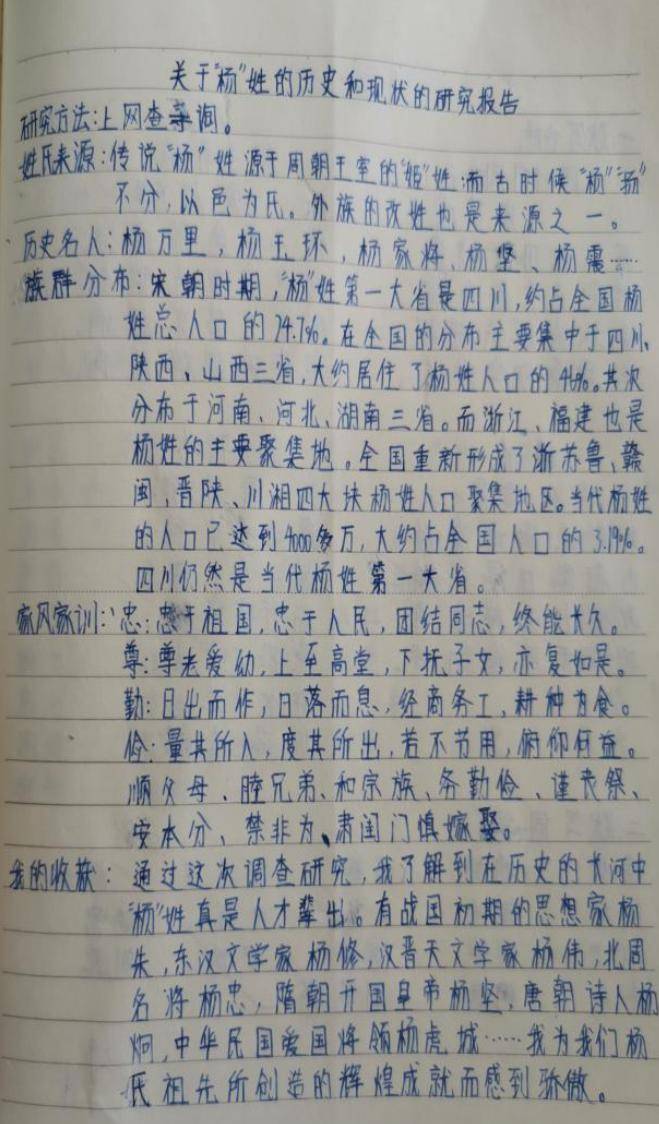 关于"杨"姓的历史和现状的研究报告
研究方法:上网查询。
姓氏来源:传说"杨"姓源于周朝王室的"姬"姓;而古时候"杨""扬"
不分,以邑为氏。外族的改姓也是来源之一。
历史名人:杨万里,杨玉环,杨家将、杨坚、杨震……
族群分布:宋朝时期,"杨"姓第一大省是四川,约占全国杨
姓总人口的24.7%。在全国的分布主要集中于四川、
陕西、山西三省,大约居住了杨姓人口的46%。其次
分布于河南、河北、湖南三省。而浙江、福建也是
杨姓的主要聚集地。全国重新形成了浙苏鲁、赣
闽,晋陕、川湘四大块杨姓人口聚集地区。当代杨姓
的人口已达到4000多万,大约占全国人口的3.19%。
四川仍然是当代杨姓第一大省。
家风家训:忠:忠于祖国,忠于人民,团结同志,终能长久。
尊:尊老爱幼,上至高堂,下抚子女,亦复如是。
勤:日出而作,日落而息,经商务工,耕种为食。
俭:量其所入,度其所出,若不节用,俯仰何益。
顺父母、睦兄弟、和宗族、务勤俭、谨丧祭、
安本分、禁非为、肃闺门慎嫁娶。
我的收获:通过这次调查研究,我了解到在历史的大河中
"杨"姓真是人才辈出。有战国初期的思想家杨
朱,东汉文学家杨修,汉晋天文学家杨伟,北周
名将杨忠,隋朝开国皇帝杨坚,唐朝诗人杨
炯,中华民国爱国将领杨虎城……我为我们杨
氏祖先所创造的辉煌成就而感到骄傲。